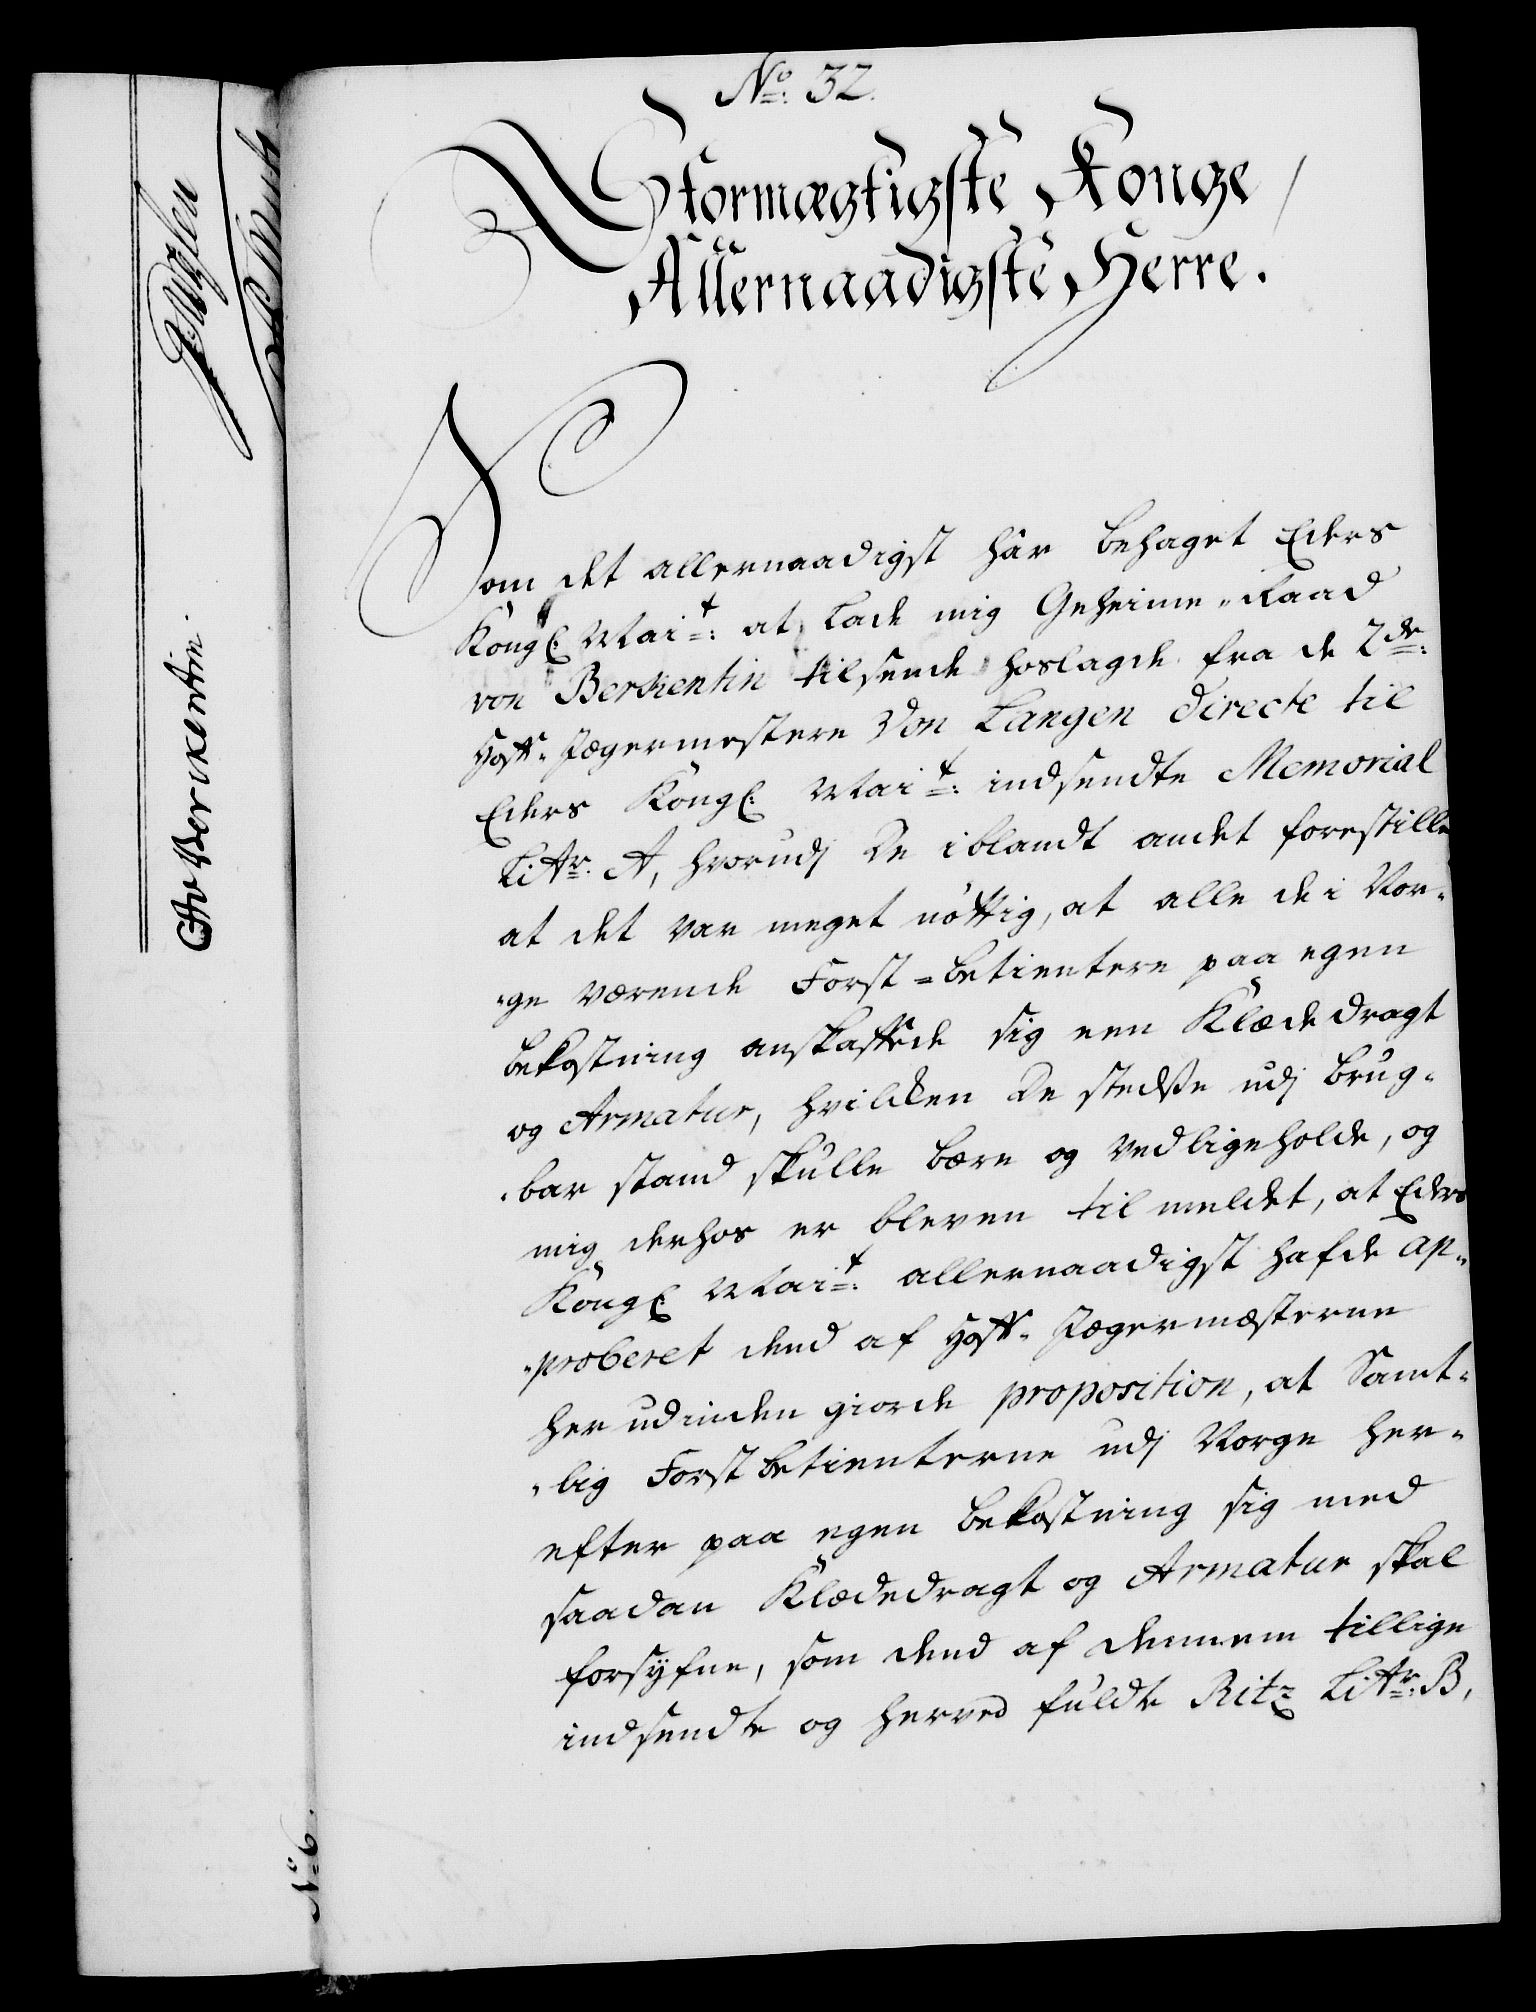 No: 32.
Stormægtigste Konge
Allernaadigste Herre.
Som det allernaadigst har behaget Eders
Kongl: Mait: at lade mig Geheime-Raad
von Berkentin tilsende hoslagde fra de 2de:
Hoff-Jægermestere Von Langen directe til
Eders Kongl: Mait: indsendte Memorial
Littr. A, hvorudj De iblandt andet forestille
at det var meget nöttig, at alle de i Nor-
-ge værende Forst-betientere paa egen
bekostning anskaffede sig een Klædedragt
og Armatur, hvilken De stedse udj brug-
-bar stand skulle bære og vedligeholde, og
mig derhos er bleven tilmeldet, at Eders
Kongl: Mait: allernaadigst hafde ap-
-proberet dend af Hoff-Jægermesterne
herudinden giorde proposition, at Samt-
-lig Forstbetienterne udj Norge her-
efter paa egen bekostning sig med
saadan Klædedragt og Armatur skal
forsyfne, som dend af dennem tillige
indsendte og herved fulde Ritz Littr: B,
No 6.